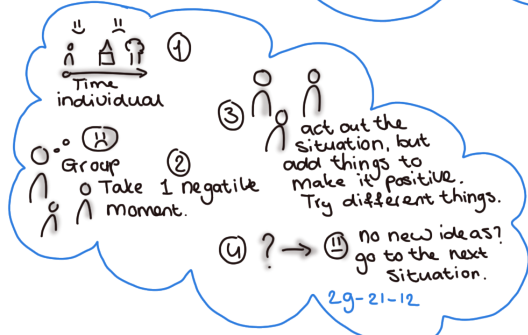 1
Time
individual
Group
2
Take 1 negative
moment.
3
act out the
situation, but
add things to
make it positive.
Try different things.
4 ? →
no new ideas?
go to the next
situation.
29-21-12